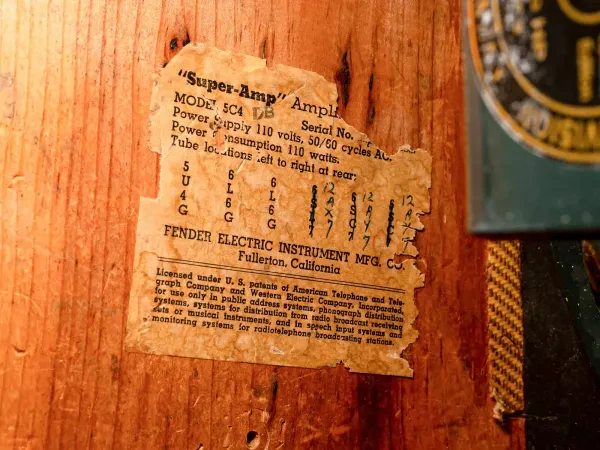 "Super-Amp" Ampli
MODEL 5C4 DB Serial No.
Power Supply 110 volts, 50/60 cycles AC.
Power Consumption 110 watts.
Tube locations left to right at rear:
5 6 6 12 6 12 12
U L L A S A A
4 6 6 X C Y X
G G G 7 7 7 7
FENDER ELECTRIC INSTRUMENT MFG. CO.
Fullerton, California
Licensed under U. S. patents of American Telephone and Tele-
graph Company and Western Electric Company, Incorporated,
for use only in public address systems, phonograph distribution
systems, systems for distribution from radio broadcast receiving
sets or musical instruments, and in speech input systems and
monitoring systems for radiotelephone broadcasting stations.